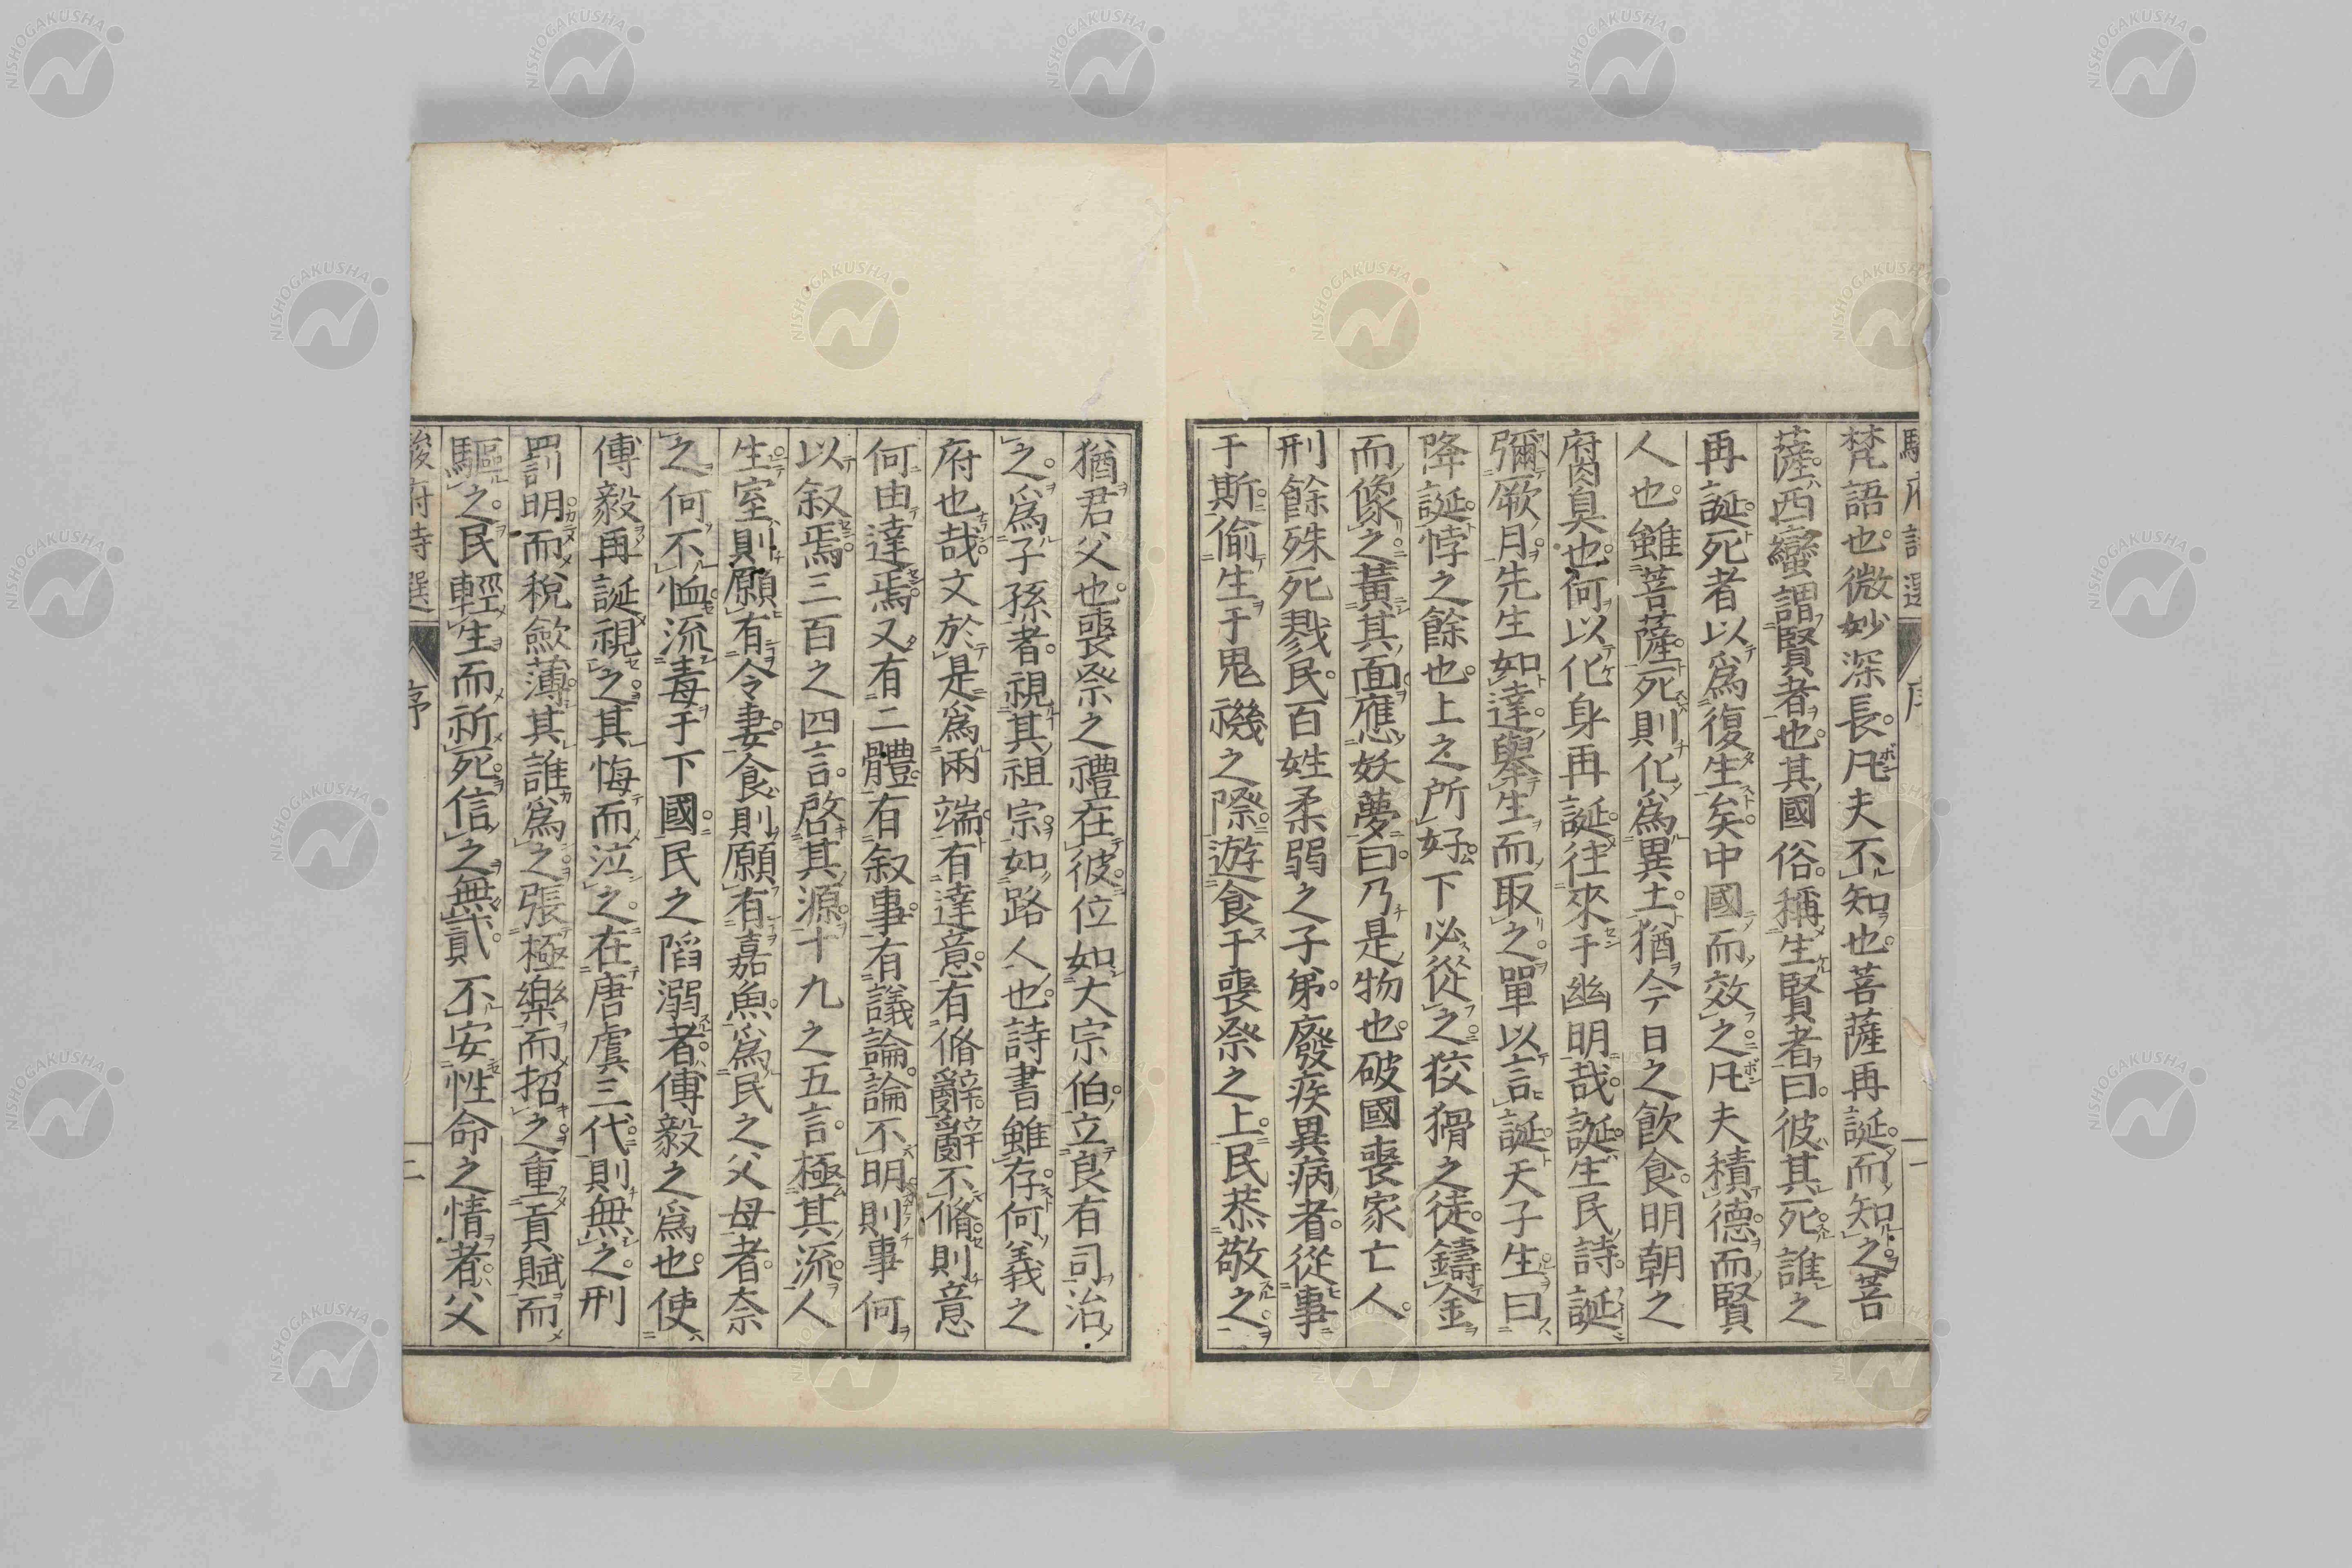 梵語也微妙深長凡夫不知也菩薩再誕而知之菩
薩西蠻謂賢者也其國俗稱生賢者曰彼其死誰之
再誕死者以爲復生矣中國而效之凡夫積德而賢
人也雖菩薩死則化爲異土猶今日之飮食明朝之
腐臭也何以化身再誕往來于幽明哉誕生民詩誕
彌厥月先生如達舉生而取之單以言誕天子生曰
降誕悖之餘也上之所好下必從之狡猾之徒鑄金
而像之黃其面應妖夢曰乃是物也破國喪家亡人
刑餘殊死戮民百姓柔弱之子弟廢疾異病者從事
于斯偷生于鬼禨之際遊食于喪祭之上民恭敬之
猶君父也喪祭之禮在彼位如大宗伯立良有司治
之爲子孫者視其祖宗如路人也詩書雖存何義之
府也哉文於是爲兩端有達意有脩辭辭不脩則意
何由達焉又有二體有叙事有議論論不明則事何
以叙焉三百之四言啓其源十九之五言極其流人
生室則願有令妻食則願有嘉魚爲民之父母者奈
之何不恤流毒于下國民之陷溺者傅毅之爲也使
傅毅再誕視之其悔而泣之在唐虞三代則無之刑
罰明而稅斂薄其誰爲之張極樂而招之重貢賦而
驅之民輕生而祈死信之無貳不安性命之情者父
駿府詩選
序
二
NISHOGAKUSHA